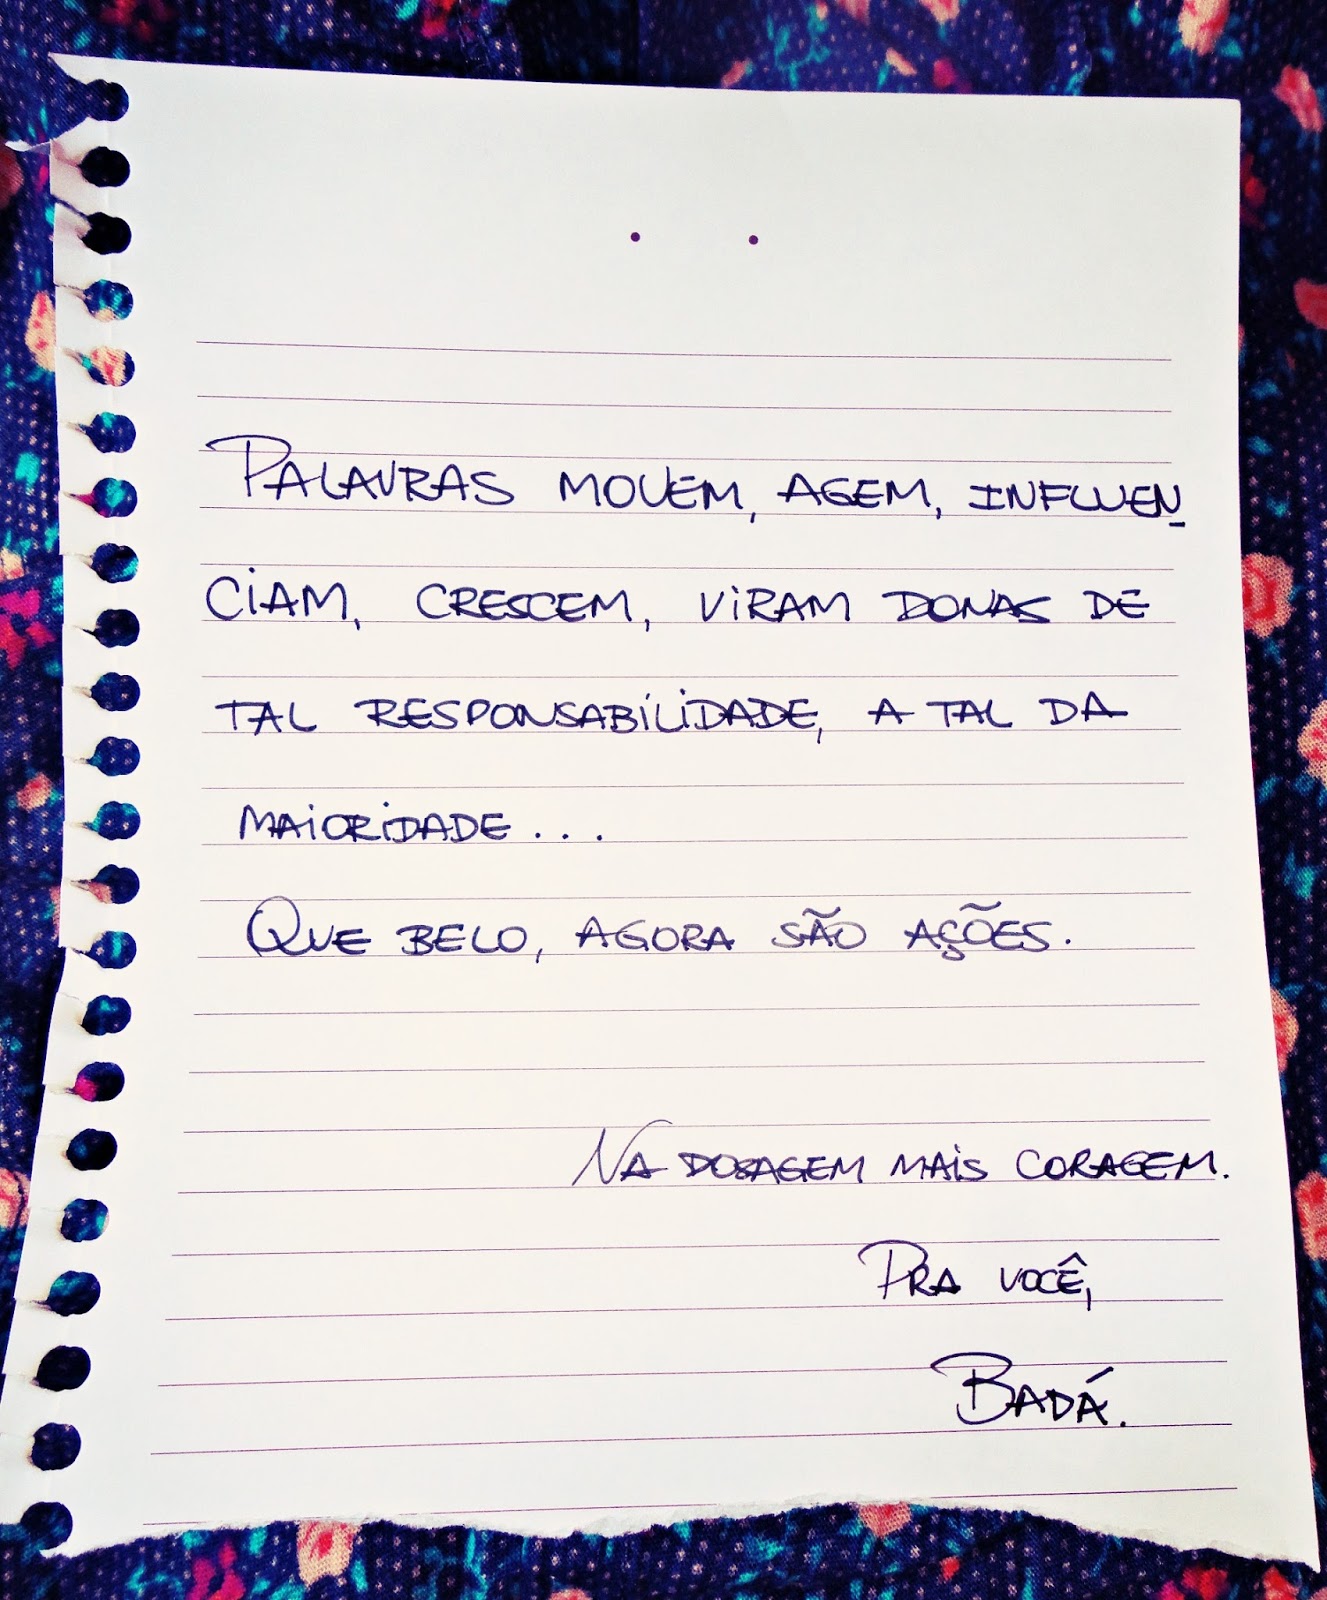 PALAVRAS MOVEM, AGEM, INFLUEN
CIAM, CRESCEM, VIRAM DONAS DE
TAL RESPONSABILIDADE, A TAL DA
MAIORIDADE...
QUE BELO, AGORA SÃO AÇÕES.
NA DOSAGEM MAIS CORAGEM.
PRA VOCÊ,
BADÁ.